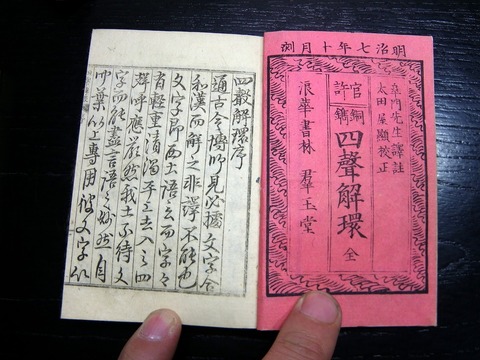 明治七年十月刻
門先生譯註
太田屋顯挍正
官許
銅鐫
四聲解環 全
浪華書林 羣玉堂
四聲解環序
通古今博聞見必據文字合
和漢而解之非譯不能也
文字即西土語言而字々
有輕重清濁平上去入之四
聲呼應嚴然我土不待文
字而能盡言語之妙然自
中葉以上專用彼文字以